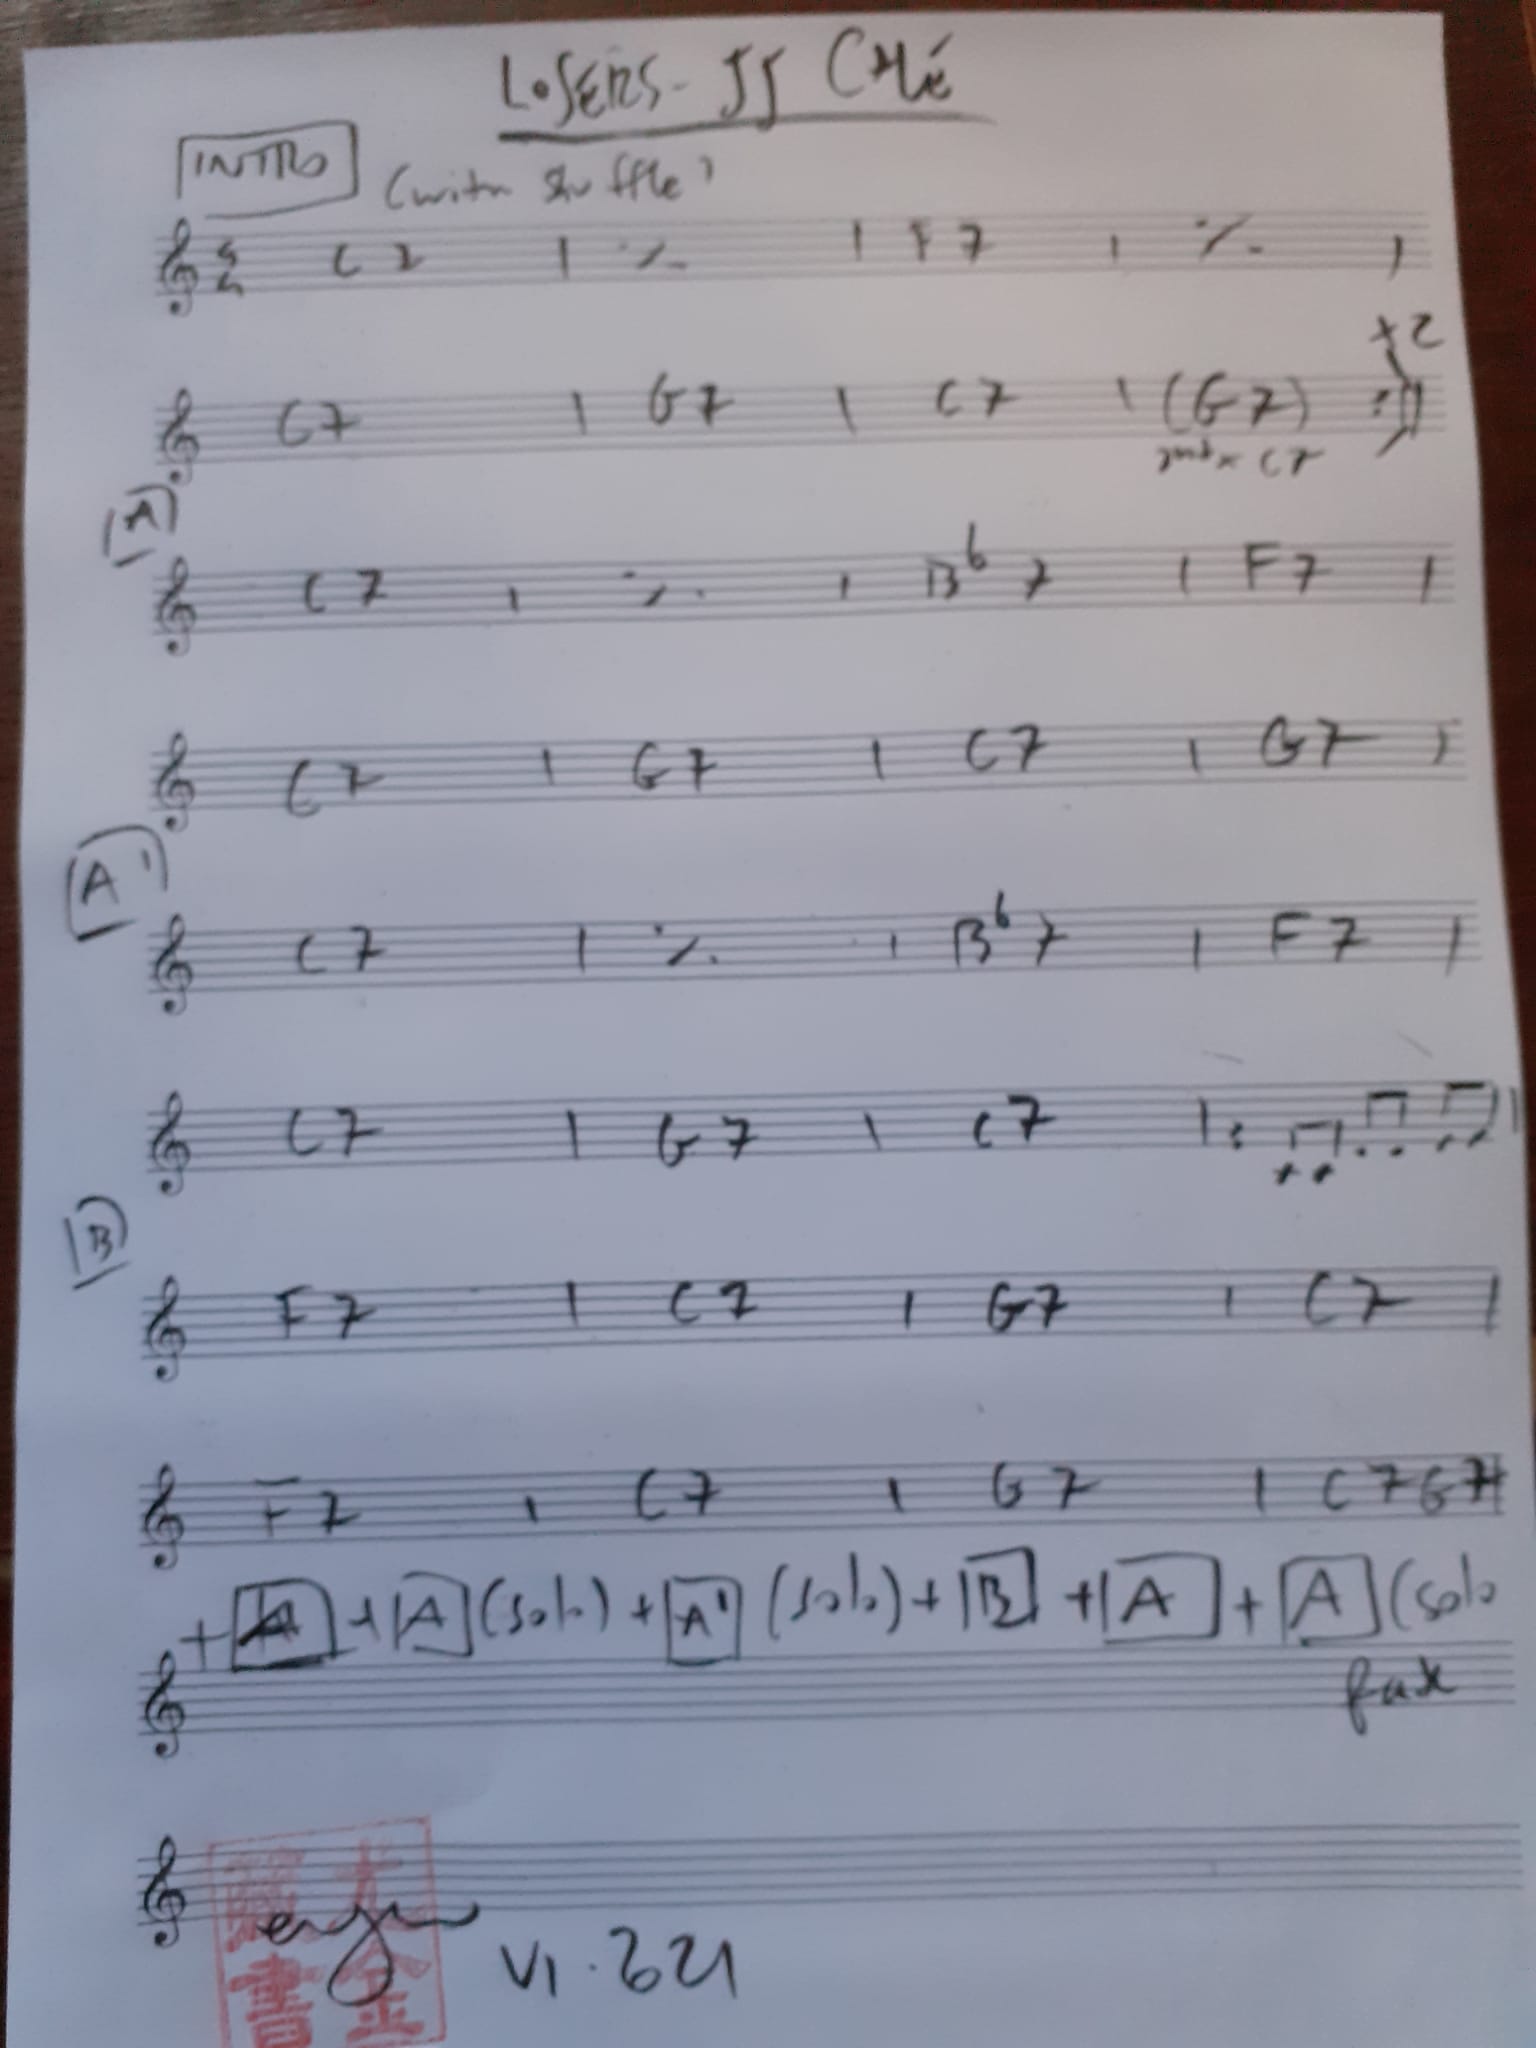 LOSERS - JJ CALE
INTRO (with shuffle)
C7 | ٪ | F7 | ٪ |
x2
C7 | G7 | C7 | (G7) :||
2nd x C7
A
C7 | ٪ | Bb7 | F7 |
C7 | G7 | C7 | G7 |
A'
C7 | ٪ | Bb7 | F7 |
C7 | G7 | C7 |
B
F7 | C7 | G7 | C7 |
F7 | C7 | G7 | C7 G7 |
+ A + A (solo) + A' (solo) + B + A + A (solo
藏大
書金